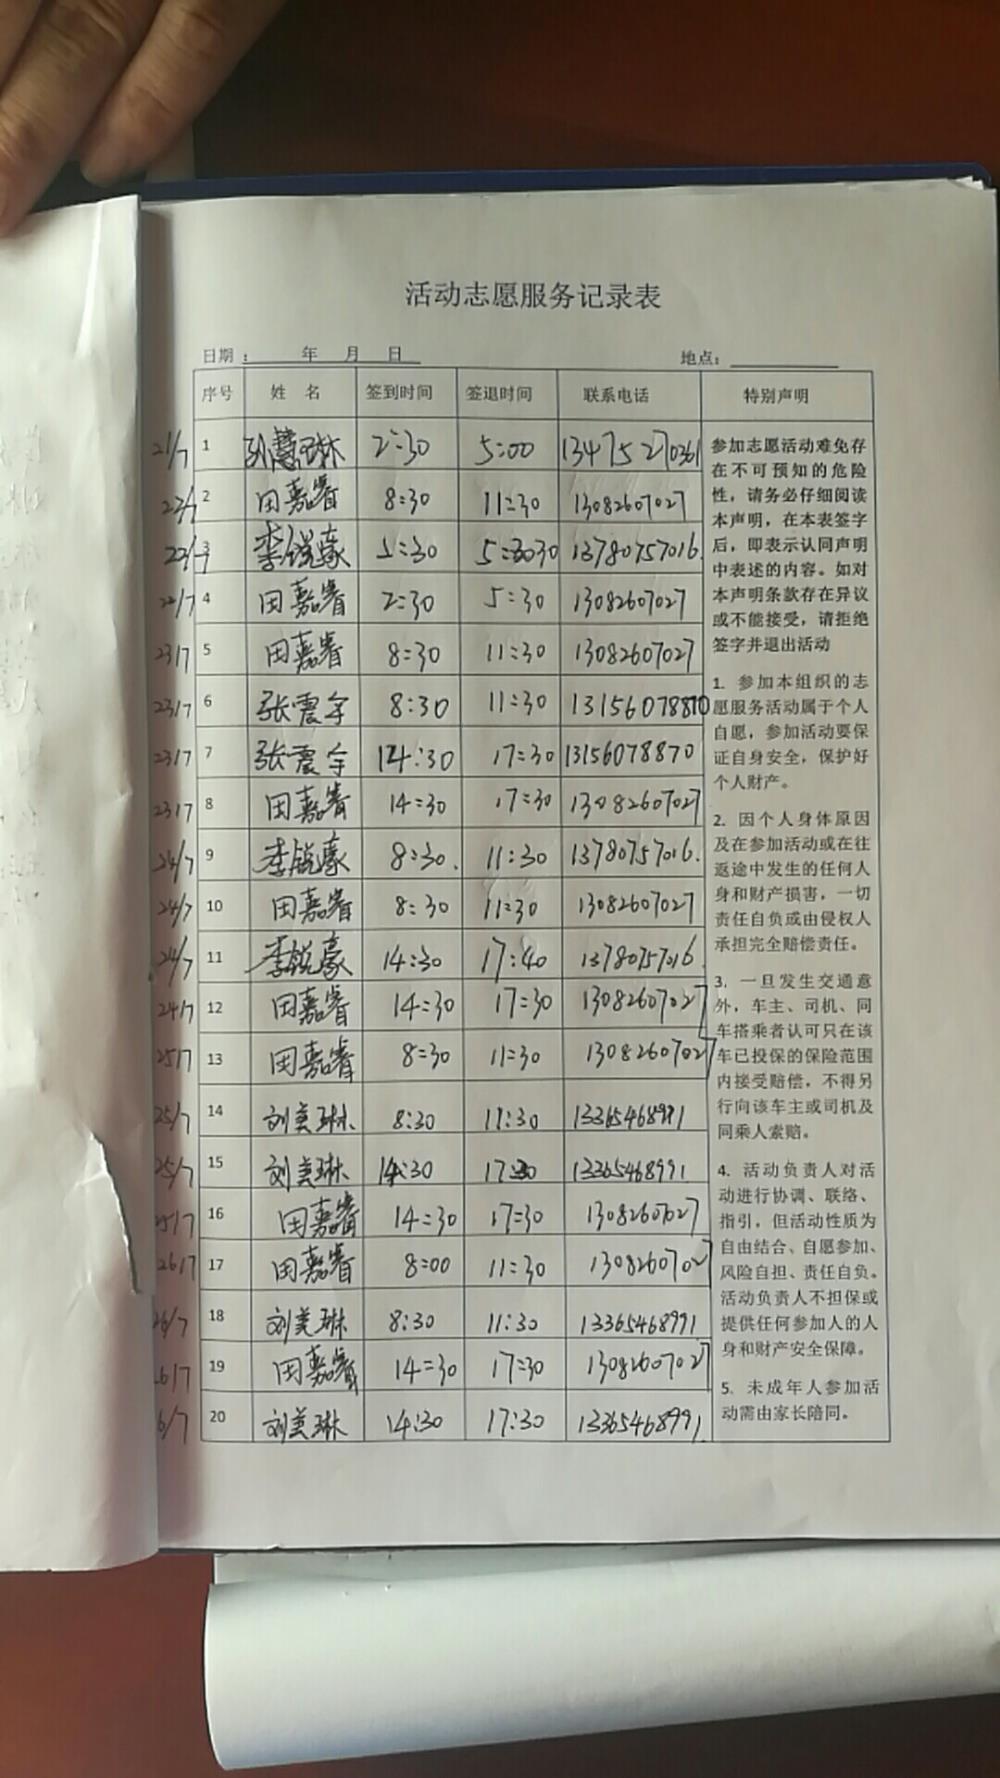 活动志愿服务记录表
日期：＿＿＿年 月 日 地点：＿＿＿
序号 姓 名 签到时间 签退时间 联系电话 特别声明
21/7 1 孙慧琳 2:30 5:00 13475270361
22/7 2 田嘉睿 8:30 11:30 13082607027
22/7 3 李锐豪 2:30 5:30 13780757016
22/7 4 田嘉睿 2:30 5:30 13082607027
23/7 5 田嘉睿 8:30 11:30 13082607027
23/7 6 张震宇 8:30 11:30 13156078870
23/7 7 张震宇 14:30 17:30 13156078870
23/7 8 田嘉睿 14:30 17:30 13082607027
24/7 9 李锐豪 8:30. 11:30 13780757016.
24/7 10 田嘉睿 8:30 11:30 13082607027
24/7 11 李锐豪 14:30 17:40 13780757016.
24/7 12 田嘉睿 14:30 17:30 13082607027
25/7 13 田嘉睿 8:30 11:30 13082607027
25/7 14 刘美琳 8:30 11:30 13365468991
25/7 15 刘美琳 14:30 17:30 13365468991.
25/7 16 田嘉睿 14:30 17:30 13082607027
26/7 17 田嘉睿 8:00 11:30 13082607027
26/7 18 刘美琳 8:30 11:30 13365468991
6/7 19 田嘉睿 14:30 17:30 13082607027
6/7 20 刘美琳 14:30 17:30 13365468991.
参加志愿活动难免存
在不可预知的危险
性，请务必仔细阅读
本声明，在本表签字
后，即表示认同声明
中表述的内容。如对
本声明条款存在异议
或不能接受，请拒绝
签字并退出活动
1. 参加本组织的志
愿服务活动属于个人
自愿，参加活动要保
证自身安全，保护好
个人财产。
2. 因个人身体原因
及在参加活动或在往
返途中发生的任何人
身和财产损害，一切
责任自负或由侵权人
承担完全赔偿责任。
3. 一旦发生交通意
外，车主、司机、同
车搭乘者认可只在该
车已投保的保险范围
内接受赔偿，不得另
行向该车主或司机及
同乘人索赔。
4. 活动负责人对活
动进行协调、联络、
指引，但活动性质为
自由结合、自愿参加、
风险自担、责任自负。
活动负责人不担保或
提供任何参加人的人
身和财产安全保障。
5. 未成年人参加活
动需由家长陪同。